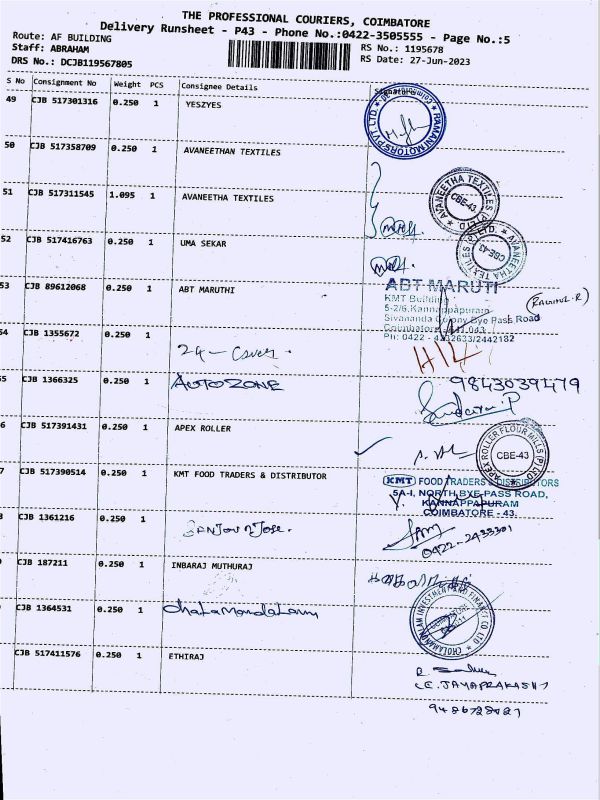 THE PROFESSIONAL COURIERS, COIMBATORE
Delivery Runsheet - P43 - Phone No.:0422-3505555 - Page No.:5
Route: AF BUILDING
Staff: ABRAHAM
DRS No.: DCJB119567805
RS No.: 1195678
RS Date: 27-Jun-2023
S No Consignment No Weight PCS Consignee Details
49 CJB 517301316 0.250 1 YESZYES
RAMANI MOTORS PVT. LTD.
50 CJB 517358709 0.250 1 AVANEETHAN TEXTILES
51 CJB 517311545 1.095 1 AVANEETHA TEXTILES
AVANEETHA TEXTILES (P) LTD
CBE-43
52 CJB 517416763 0.250 1 UMA SEKAR
AVANEETHA TEXTILES (P) LTD
CBE-43
53 CJB 89612068 0.250 1 ABT MARUTHI
ABT MARUTI
KMT Building
5-2/6, Kannappapuram
Sivananda Colony Bye Pass Road
Coimbatore - 641 043
Ph: 0422 - 4232633/2442182
54 CJB 1355672 0.250 1 24 - Cover.
55 CJB 1366325 0.250 1 AUTOZONE
9843039479
56 CJB 517391431 0.250 1 APEX ROLLER
APEX ROLLER FLOUR MILLS (P) LTD
CBE-43
57 CJB 517390514 0.250 1 KMT FOOD TRADERS & DISTRIBUTOR
KMT FOOD TRADERS & DISTRIBUTORS
5A-I, NORTH BYE-PASS ROAD,
KANNAPPAPURAM
COIMBATORE - 43.
CJB 1361216 0.250 1
0422-2433301
CJB 187211 0.250 1 INBARAJ MUTHURAJ
CJB 1364531 0.250 1
CHOLAMANDALAM INVESTMENT AND FINANCE CO LTD
CJB 517411576 0.250 1 ETHIRAJ
(E. JAYAPRAKASH)
9486728021